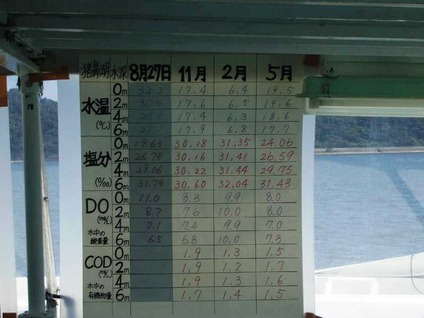 水深 8月27日 11月 2月 5月
水温 (℃)
0m 17.4 6.4 19.5
2m 17.6 6.5 19.6
4m 17.9 6.3 18.6
6m 17.9 6.8 17.7
塩分 (‰)
0m 19.63 30.18 31.35 24.06
2m 26.78 30.16 31.41 26.59
4m 30.22 31.44 29.75
6m 31.79 30.60 32.04 31.43
DO
水中の
0m 11.0 8.3 9.9 8.0
2m 8.7 7.6 10.0 8.0
4m 7.1 7.4 9.9 8.0
6m 6.5 6.8 10.0 7.3
COD
水中の
0m 1.9 1.3 1.5
2m 1.9 1.2 1.7
4m 1.9 1.3 1.6
6m 1.7 1.4 1.5